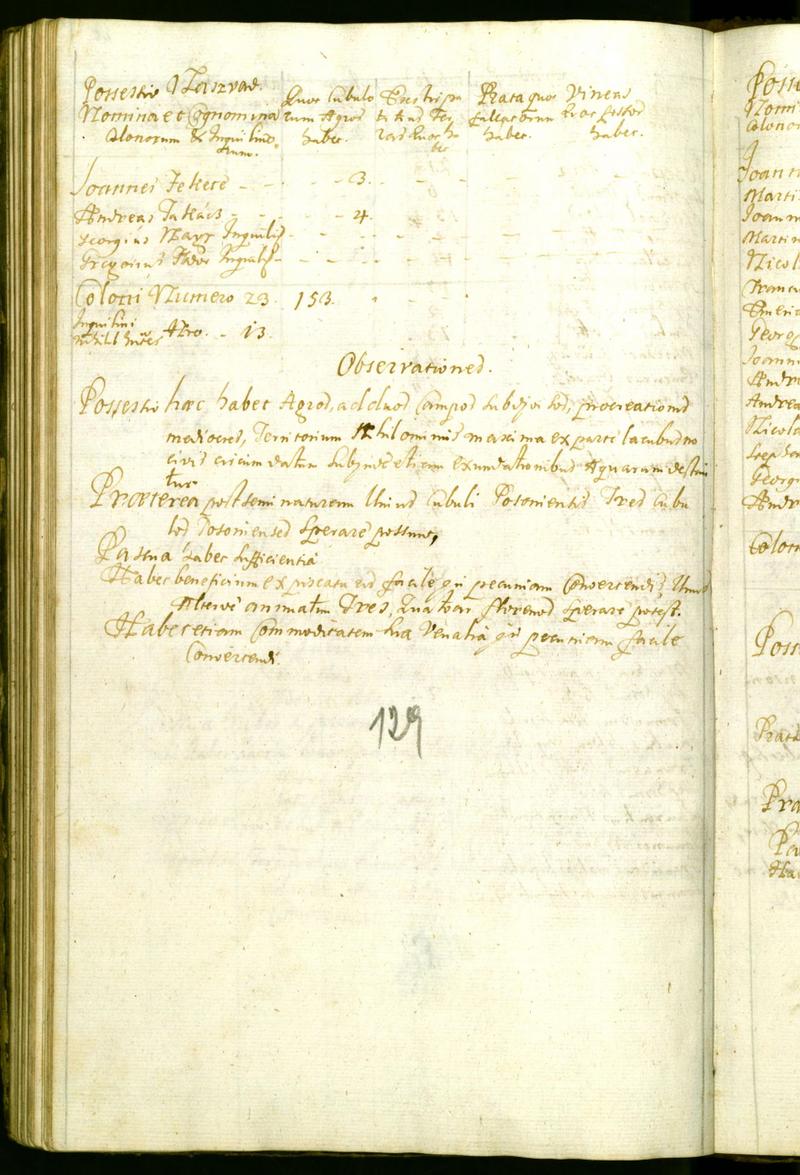 Possessio Naszvad.
Nomina et Cognomina
Colonorum & Inquilino
rum.
Quot Cubulo
rum Agros
habet.
Exstirpa
habet
Prata quot
Falcatorum
habet.
Vineas
Quot Fossor
habet.
Joannes Fekete - - - - 3.
Andreas Takács - - - - 4.
Georgius Nagy Inquilis - - -
Gregorius Inquilis - - -
Coloni Numero 23. 153.
Inquilini
nihil hntes Atro. - 13.
Observationes.
Possessio haec habet Agros, ad duos Campos procreationis
mediocres, Territorium Nihilominus maxima ex parte lacubus no
civis circumdatum Subinde etiam exundationibus Aquarum destrui
tur
Praeterea post seminaturam Unius Cubuli Posoniensis Tres Cubu
los Posonienses Sperare possunt,
Pascua habet Sufficientia
Habet beneficium ex piscatu eid facile qui pecuniam Convertendi, Unus
Alterve animatim Tres, Quatuor florenos Sperare potest.
Habet etiam Commoditatem Sua Venalia in pecuniam facile
Convertendi.
129
Poss
Nomi
Colono
Joann
Marti
Joann
Martin
Nicol
Franci
Emeri
Georg
Joann
Andr
Andrea
Nicola
Stephan
Georgi
Andr
Colon
Poss
Prata
Pra
Pa
Ha